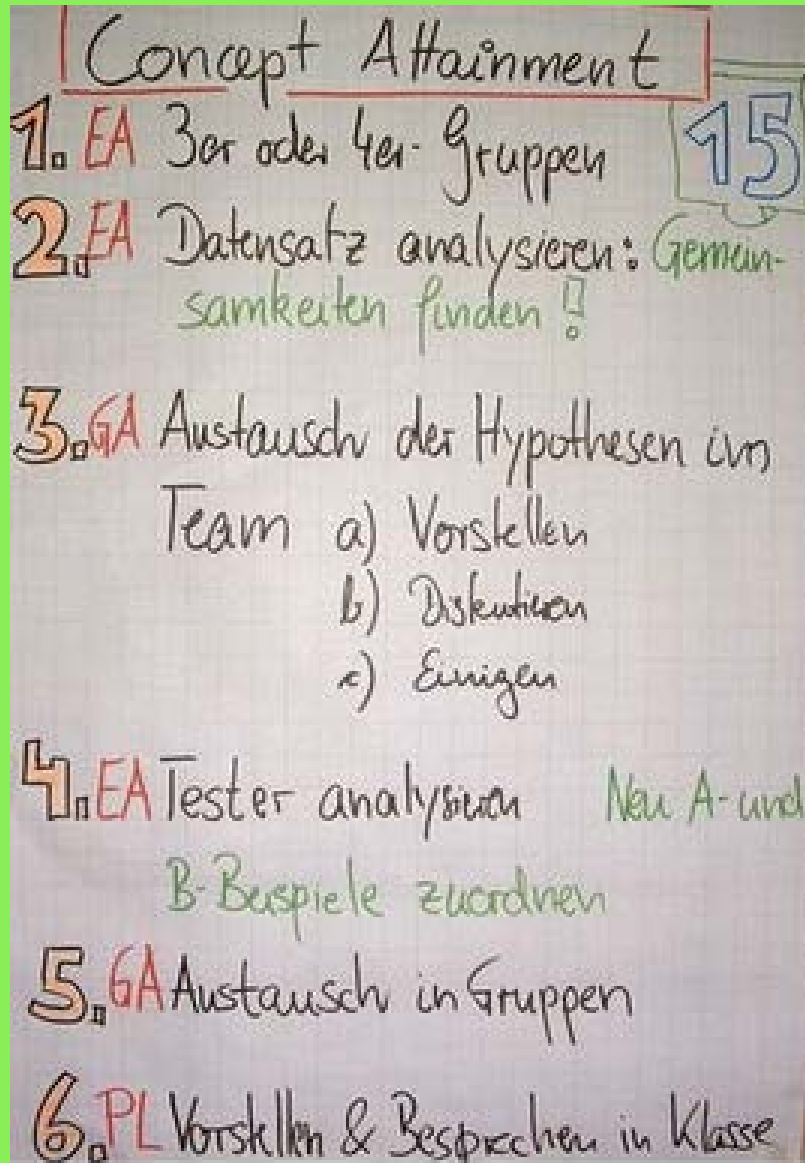 Concept Attainment
1. EA 3er oder 4er-Gruppen
15
2. EA Datensatz analysieren: Gemein-
samkeiten finden!
3. GA Austausch der Hypothesen im
Team a) Vorstellen
b) Diskutieren
c) Einigen
4. EA Tester analysieren Neu A- und
B-Beispiele zuordnen
5. GA Austausch in Gruppen
6. PL Vorstellen & Besprechen in Klasse